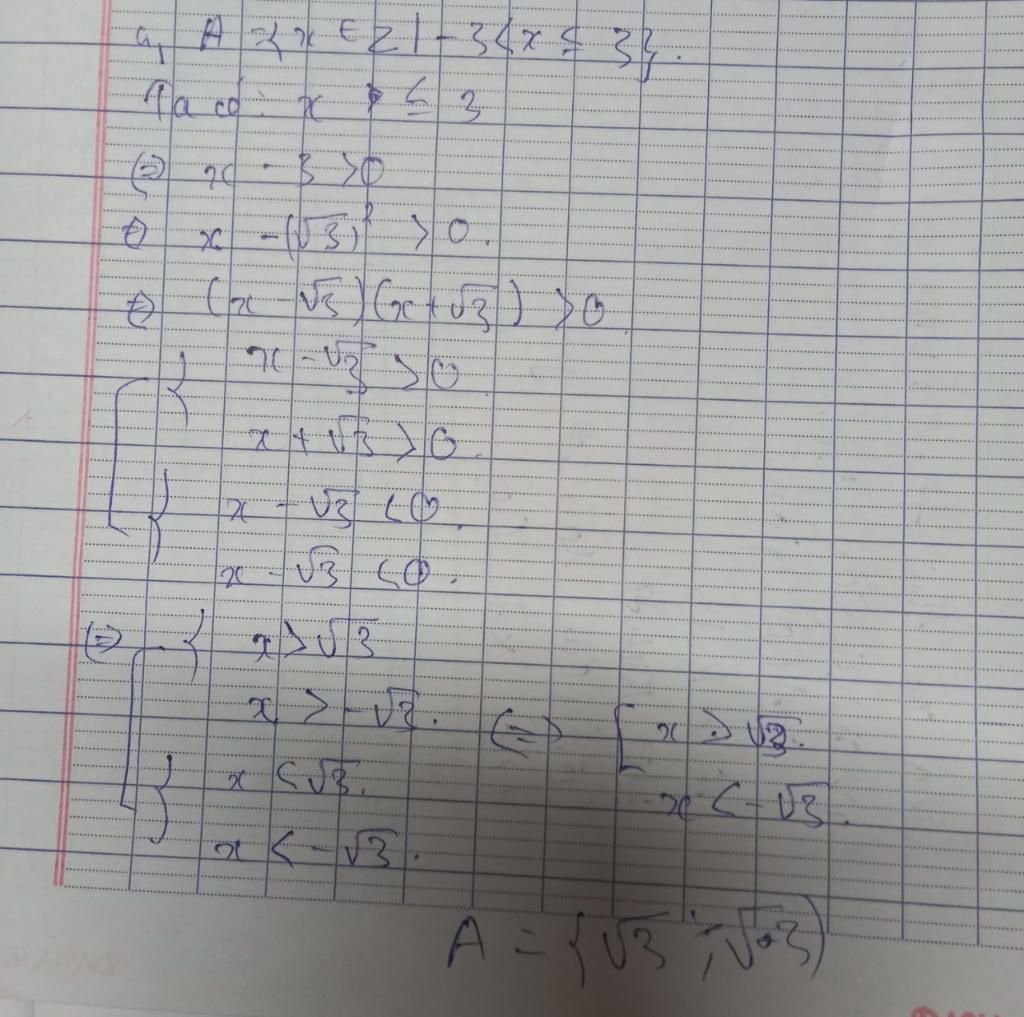 a, A = {x ∈ Z | -3 < x ≤ 3}.
Ta có: x ≤ 3
⇔ x - 3 > 0
⇔ x - (√3)² > 0.
⇔ (x - √3)(x + √3) > 0
x - √3 > 0
x + √3 > 0.
x - √3 < 0.
x - √3 < 0.
⇔ x > √3
x > -√3. ⇔ [ x > √3.
x < √3. x < -√3.
x < -√3.
A = {√3 ; -√3}